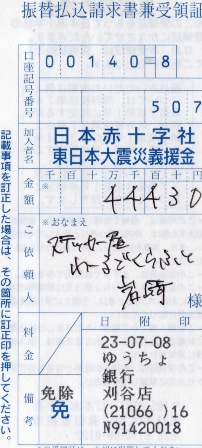 振替払込請求書兼受領証
口座記号番号
00140=8
507
加入者名
日本赤十字社
東日本大震災義援金
金額
千百十万千百十円
※
44430
ご依頼人
※おなまえ
ステッカー屋
わーるどくらふと
岩崎
様
料金
日附印
23-07-08
ゆうちょ
銀行
刈谷店
(21066 )16
N91420018
備考
免除
免
記載事項を訂正した場合は、その箇所に訂正印を押してください。